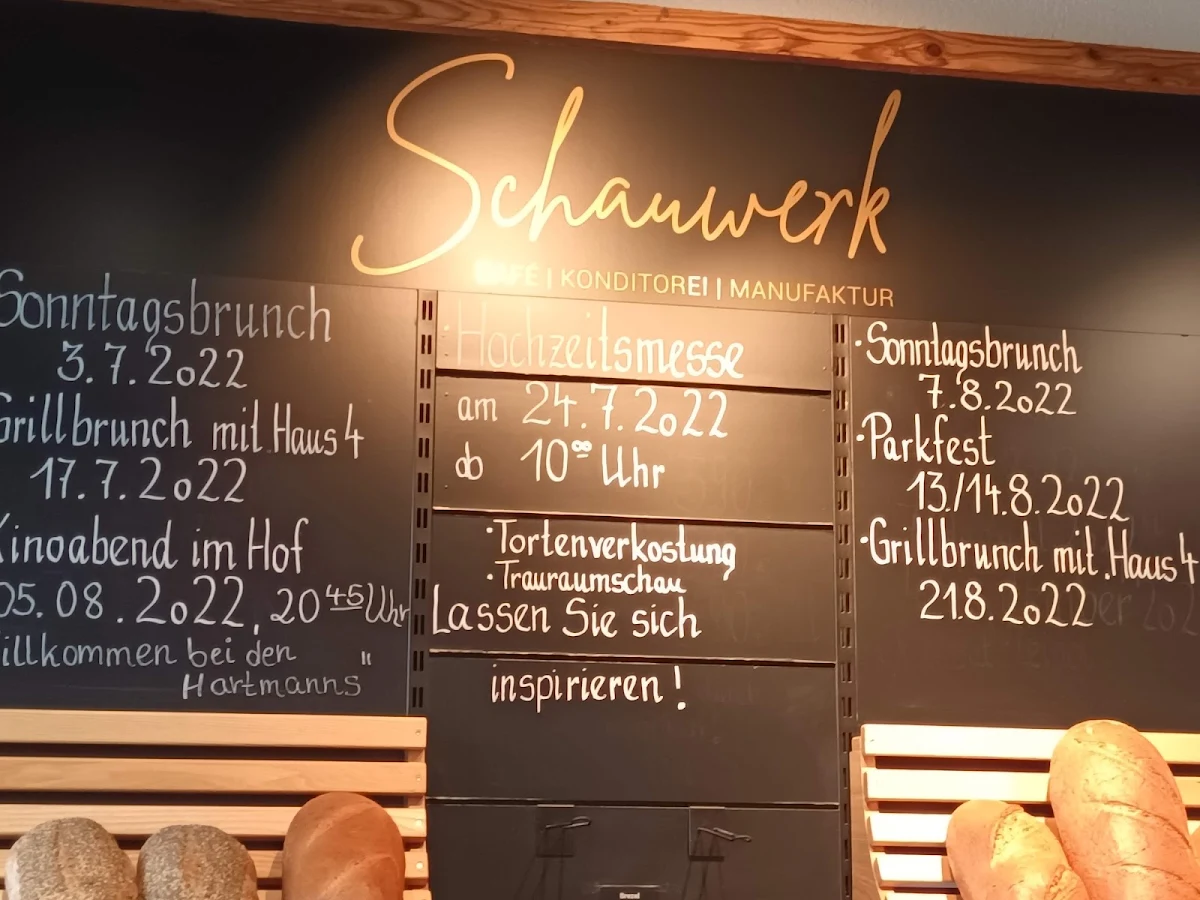 Schauwerk
CAFÉ | KONDITOREI | MANUFAKTUR
Sonntagsbrunch
3.7.2022
Grillbrunch mit Haus 4
17.7.2022
Kinoabend im Hof
05.08.2022, 20 45 Uhr
Willkommen bei den
Hartmanns"
·Hochzeitsmesse
am 24.7.2022
ab 10 00 Uhr
·Tortenverkostung
·Trauraumschau
Lassen Sie sich
inspirieren!
·Sonntagsbrunch
7.8.2022
·Parkfest
13./14.8.2022
·Grillbrunch mit Haus 4
21.8.2022